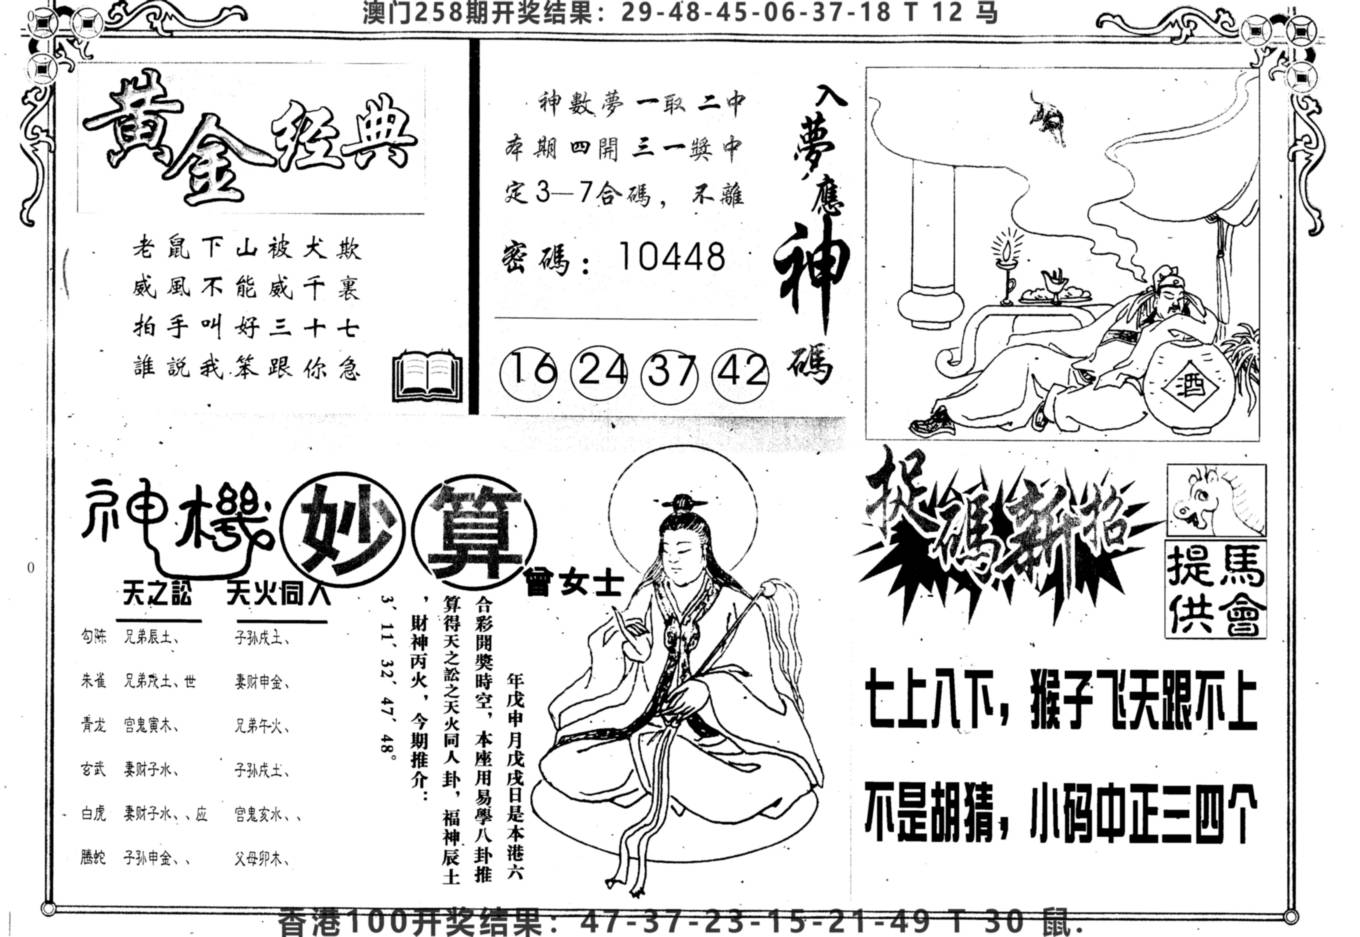 澳门258期开奖结果：29-48-45-06-37-18 T 12 马
黄金经典
老鼠下山被犬欺
威風不能威千裏
拍手叫好三十七
誰説我笨跟你急
神數夢一取二中
本期四開三一獎中
定3—7合碼，不離
密碼：10448
16 24 37 42
入夢應神碼
酒
神機妙算
曾女士
天之訟 天火同人
勾陈 兄弟辰土、 子孙戌土、
朱雀 兄弟戌土、世 妻财申金、
青龙 官鬼寅木、 兄弟午火、
玄武 妻财子水、 子孙戌土、
白虎 妻财子水、、应 官鬼亥水、、
腾蛇 子孙申金、、 父母卯木、
年戊申月戊戌日是本港六
合彩開獎時空，本座用易學八卦推
算得天之訟之天火同人卦，福神辰土
，財神丙火，今期推介：
3、11、32、47、48。
捉碼新招
馬會
提供
七上八下，猴子飞天跟不上
不是胡猜，小码中正三四个
香港100开奖结果：47-37-23-15-21-49 T 30 鼠.